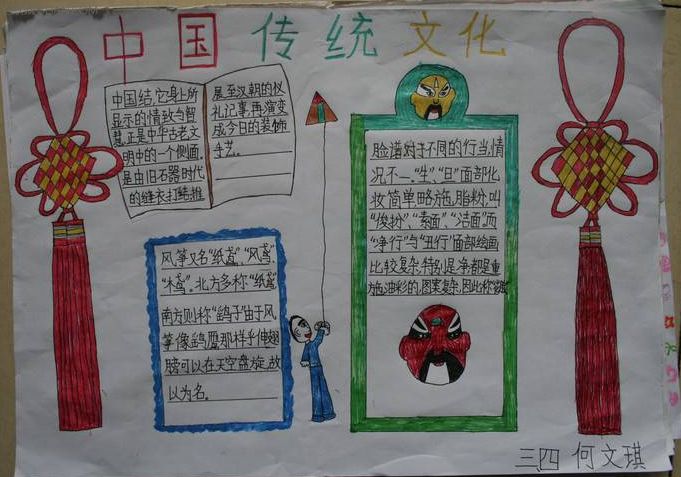 中国传统文化
中国结,它身上所
显示的情致与智
慧,正是中华古老文
明中的一个侧面.
是由旧石器时代
的缝衣打结,推
展至汉朝的仪
礼记事,再演变
成今日的装饰
手艺。
风筝又名"纸鸢","风鸢",
"木鸢"。北方多称"纸鸢"
南方则称"鹞子"由于风
筝像鹞鹰那样乎伸翅
膀可以在天空盘旋,故
以为名。
脸谱对于不同的行当,情
况不一."生"、"旦"面部化
妆简单,略施脂粉,叫
"俊扮"、"素面"、"洁面".而
"净行"与"丑行"面部绘画
比较复杂,特别是净,都是重
施油彩的,图案复杂,因此称
三.四 何文琪